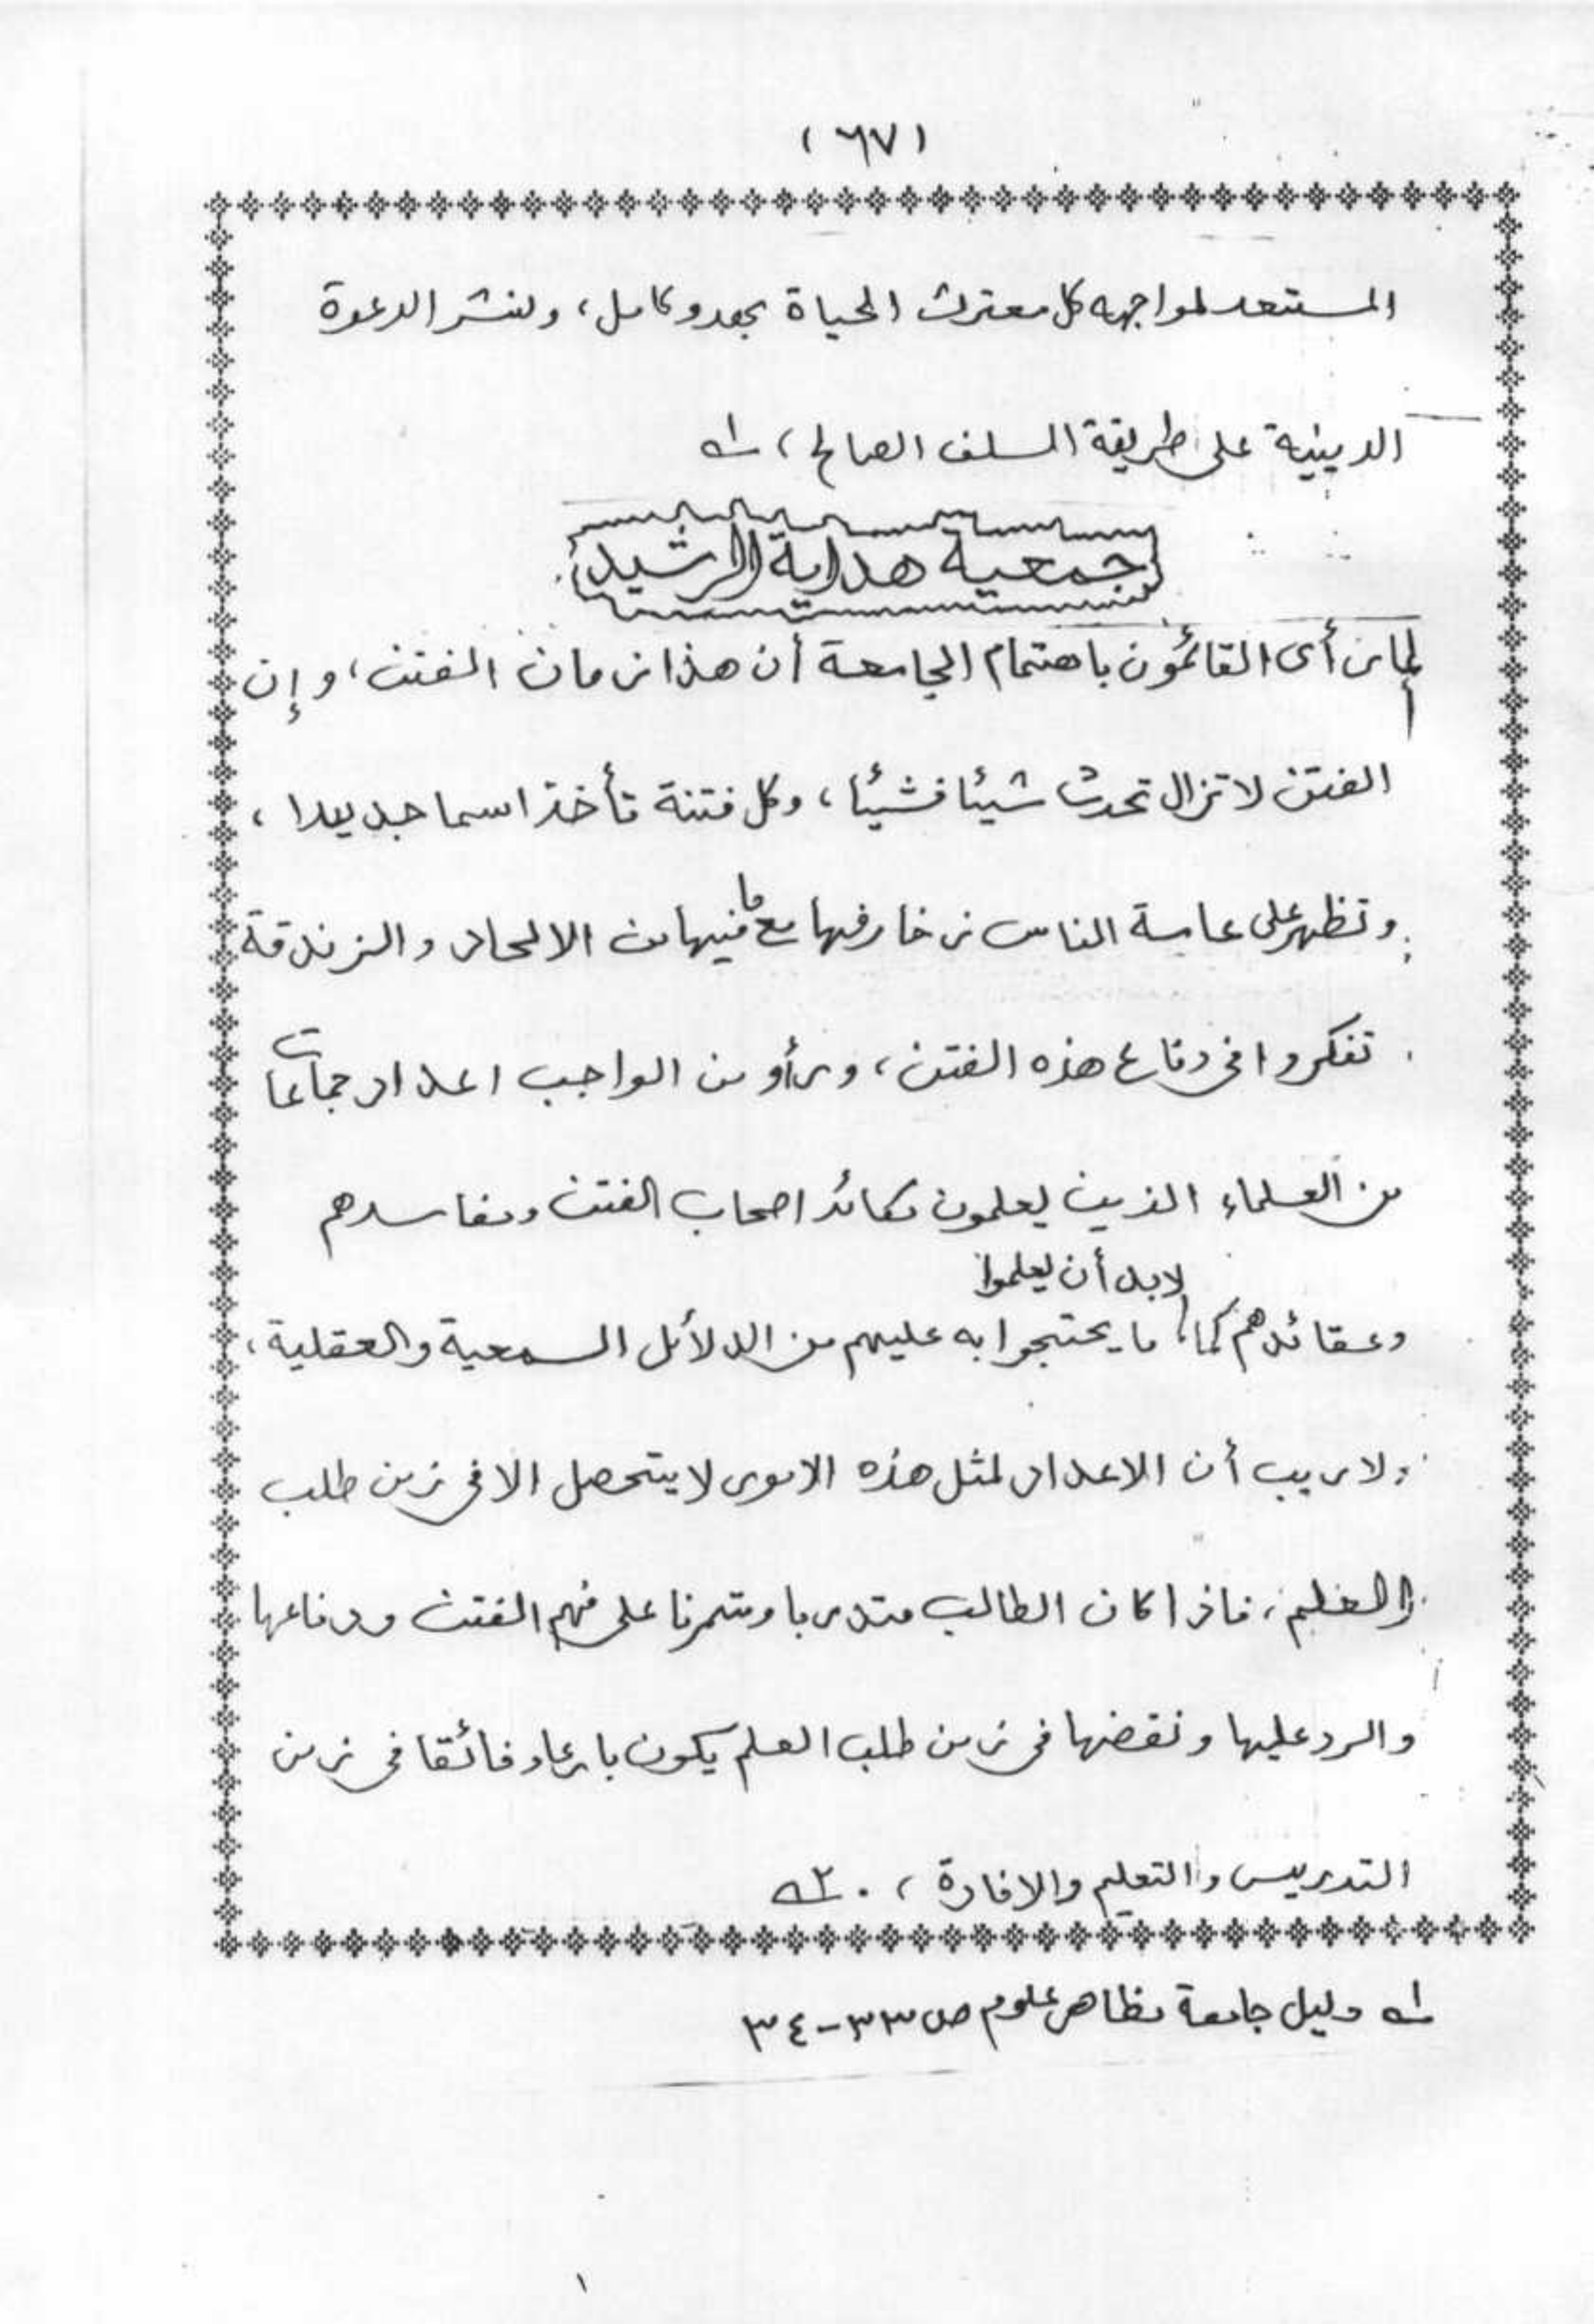 (٦٧)
المستعد لمواجهه كل معترك الحياة بجد وكامل، ولنشر الدعوة
الدينية على طريقة السلف الصالح، ١ه
جمعية هداية الرشيد
لما رأى القائمون باهتمام الجامعة أن هذا زمان الفتن، وإن
الفتن لا تزال تحدث شيئا فشيئا، وكل فتنة تأخذ اسما جديدا،
وتظهر على عامة الناس زخارفها مع ما فيها من الالحاد والزندقة
تفكروا فى دفاع هذه الفتن، ورأو من الواجب اعداد جماعات
من العلماء الذين يعلمون مكائد اصحاب الفتن ومفاسدهم
وعقائدهم كما لابد أن يعلموا ما يحتجوا به عليهم من الدلائل السمعية والعقلية،
ولا ريب أن الاعداد لمثل هذه الامور لا يتحصل الا فى زمن طلب
العلم، فاذا كان الطالب متدربا ومتمرنا على فهم الفتن ودفاعها
والرد عليها ونقضها فى زمن طلب العلم يكون بارعا وفائقا فى زمن
التدريس والتعليم والافادة، . ٢ه
١ه دليل جامعة مظاهر علوم ص ٣٣-٣٤